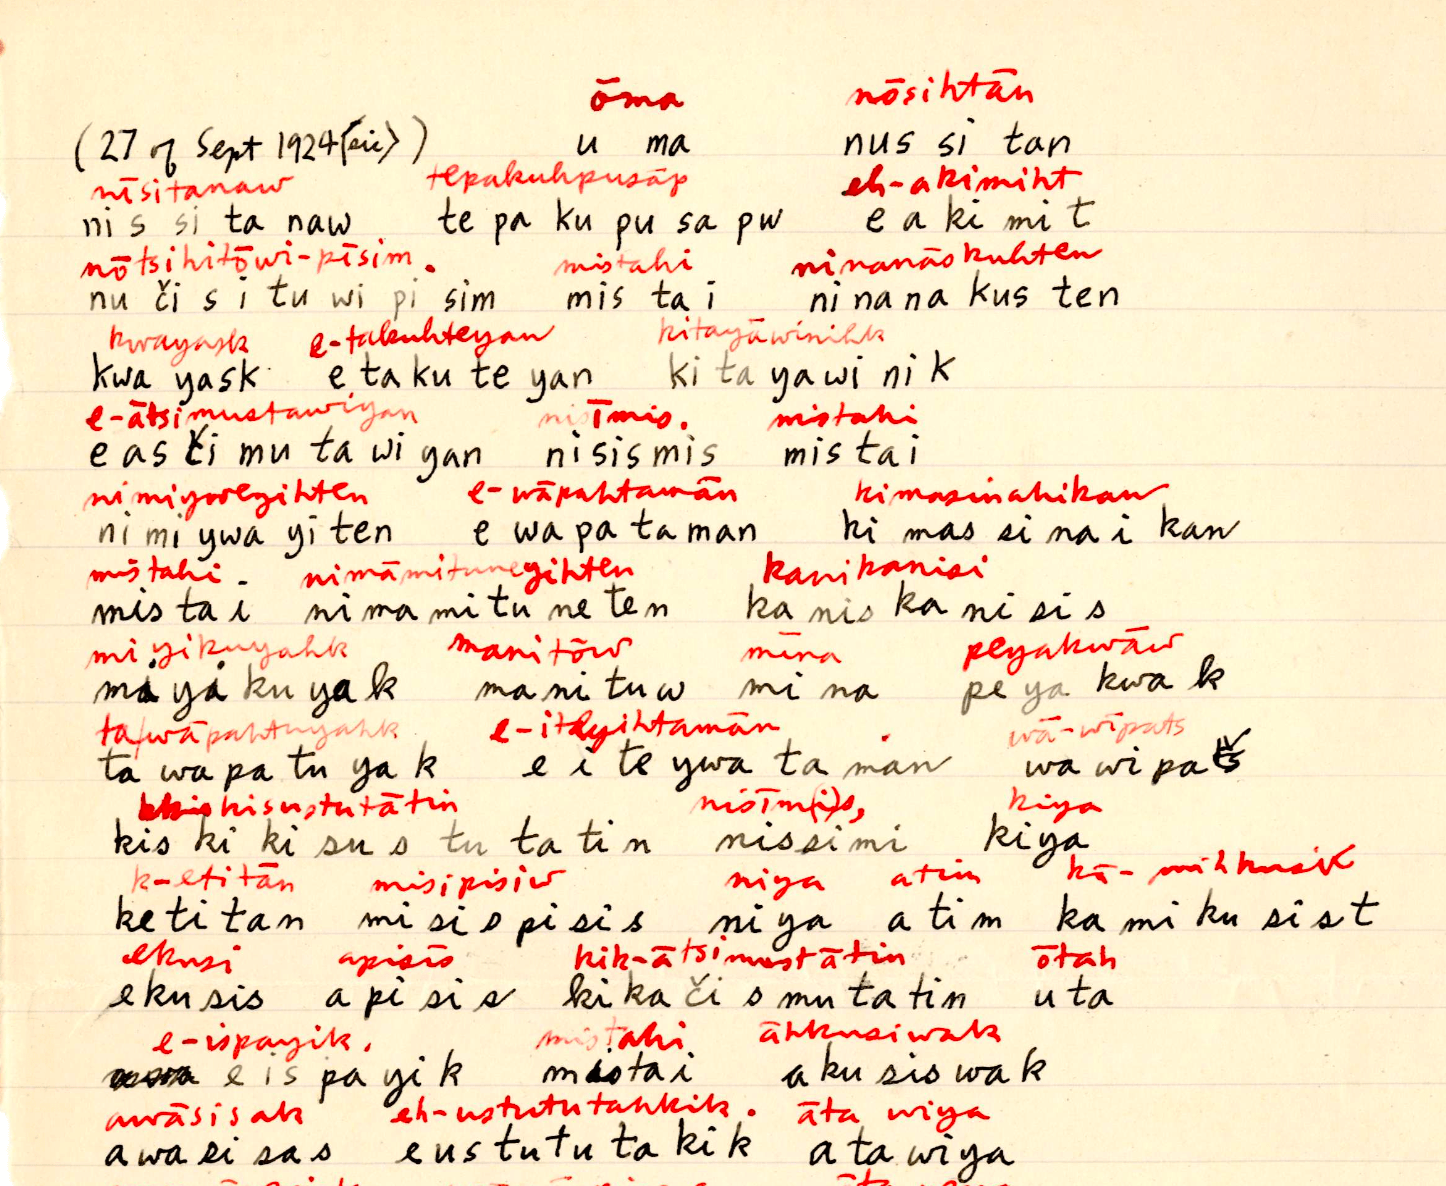 ōma nōsihtān
(27 of Sept 1924 <sic>) u ma nus si tan
nīsitanaw tepakuhpusāp eh-akimiht
nis si ta naw te pa ku pu sa pw e a ki mi t
nōtsihitōwi-pīsim. mistahi ninanāskuhten
nu či s i tu wi pi sim mis ta i ni na na kus ten
kwayask e-takuhteyan kitayāwinihk
kwa yask e ta ku te yan ki ta yawi ni k
e-ātsimustawiyan nisīmis. mistahi
e as či mu ta wi yan nisismis mis ta i
nimiyweyihten e-wāpahtamān kimasinahikan
ni mi ywa yi ten e wa pa ta man ki mas si na i kan
mistahi. nimāmituneyihten kanikanisi
mis ta i ni ma mi tu ne ten ka nis ka ni si s
miyikuyahk manitōw mīna peyakwāw
mi yi ku ya k ma ni tu w mi na pe ya kwa k
ta/wāpahtuyahk e-iteyihtamān wā-wīpats
ta wa pa tu ya k e i te ywa ta man wa wi pa ts
kiskisustutātin nisīm(i)s, kiya
kis ki ki su s tu ta ti n nissimi kiya
k-etitān misipisiw niya atim kā-mihkusit
ke ti tan mi si s pi si s ni ya a ti m ka mi ku si s t
ekusi apisīs kik-ātsimustātin ōtah
e ku sis a pi si s ki ka či s mu ta tin u ta
e-ispayik. mistahi āhkusiwak
e i s pa yi k mistai a ku sis wa k
awāsisak eh-ustututahkik. āta wiya
a wa si sa s e us tu tu ta ki k a ta wi ya